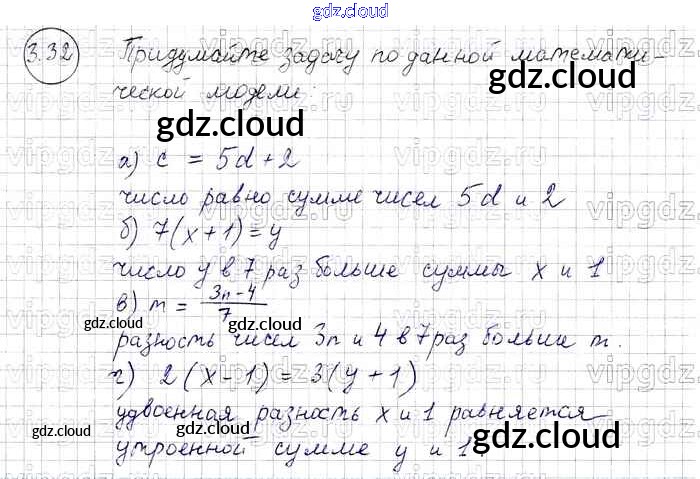 gdz.cloud
3.32 Придумайте задачу по данной математи-
ческой модели:
gdz.cloud
gdz.cloud
а) c = 5d + 2
число равно сумме чисел 5d и 2
б) 7(x + 1) = y
число y в 7 раз больше суммы x и 1
в) m = \frac{3n - 4}{7}
gdz.cloud
gdz.cloud
разность чисел 3n и 4 в 7 раз больше m.
г) 2(x - 1) = 3(y + 1)
удвоенная разность x и 1 равняется
gdz.cloud
gdz.cloud
gdz.cloud
утроенной сумме y и 1